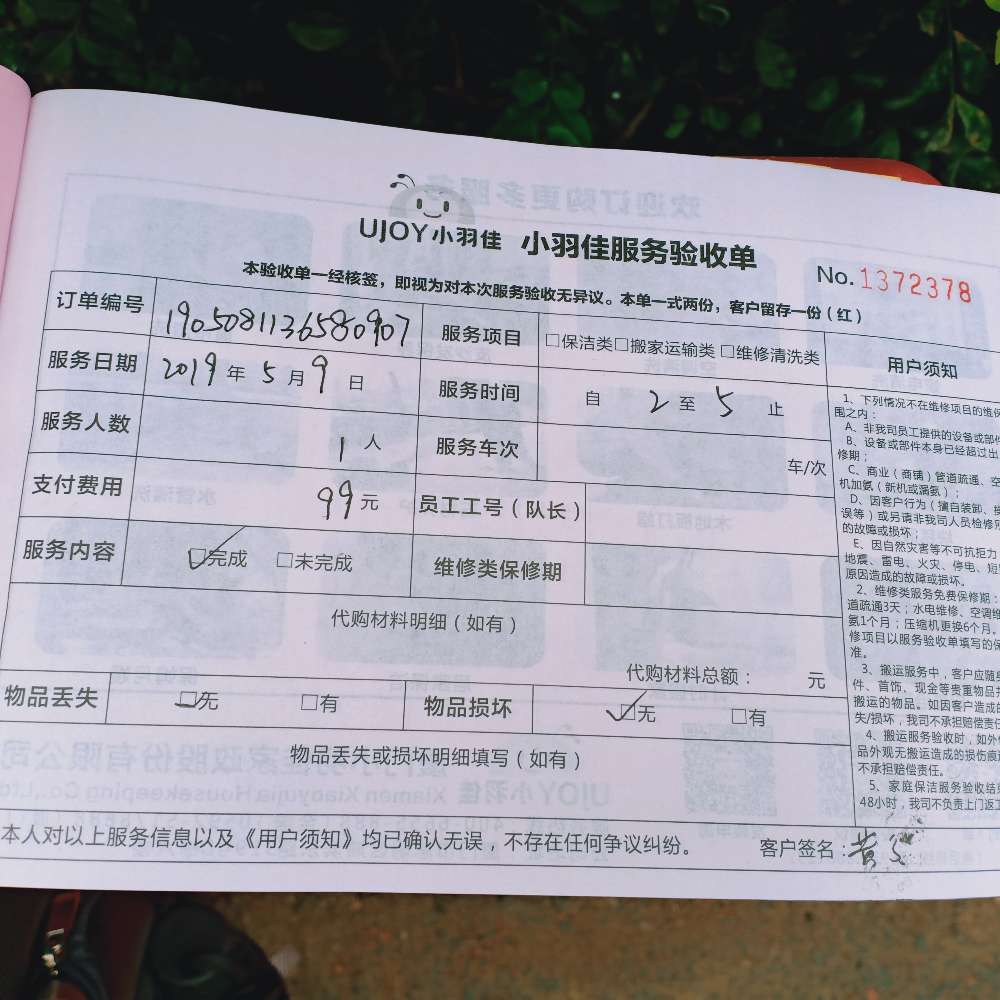 UJOY小羽佳 小羽佳服务验收单
No.1372378
本验收单一经核签，即视为对本次服务验收无异议。本单一式两份，客户留存一份（红）
订单编号 1905081136580907 服务项目 □保洁类□搬家运输类□维修清洗类 用户须知
服务日期 2019年5月9日 服务时间 自2至5止
服务人数 1人 服务车次 车/次
支付费用 99元 员工工号（队长）
服务内容 ☑完成 □未完成 维修类保修期
代购材料明细（如有）
代购材料总额： 元
物品丢失 ☑无 □有 物品损坏 ☑无 □有
物品丢失或损坏明细填写（如有）
本人对以上服务信息以及《用户须知》均已确认无误，不存在任何争议纠纷。 客户签名：黄
1、下列情况不在维修项目的维保
围之内：
A、非我司员工提供的设备或部件
B、设备或部件本身已经超过出
修期；
C、商业（商铺）管道疏通、空
机加氨（新机或漏氨）；
D、因客户行为（擅自装卸、操
误等）或另请非我司人员检修形
的故障或损坏；
E、因自然灾害等不可抗拒力
地震、雷电、火灾、停电、短
原因造成的故障或损坏。
2、维修类服务免费保修期：
道疏通3天；水电维修、空调维
氨1个月；压缩机更换6个月。
修项目以服务验收单填写的保
准。
3、搬运服务中，客户应随身
件、首饰、现金等贵重物品
搬运的物品。如因客户造成的
失/损坏，我司不承担赔偿责任
4、搬运服务验收时，如外
品外观无搬运造成的损伤痕
不承担赔偿责任。
5、家庭保洁服务验收结
48小时，我司不负责上门返工